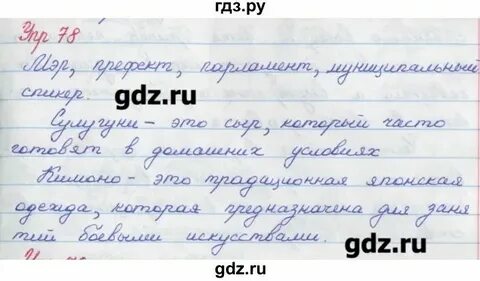 гдз.ру
Упр 78
Мэр, префект, парламент, муниципальный
спикер.
gdz.ru
Сулугуни – это сыр, который часто
готовят в домашних условиях
Кимоно – это традационная японская
одежда, которая предназначена для заня
тий боевыми искусствами.
gdz.ru
gdz.ru